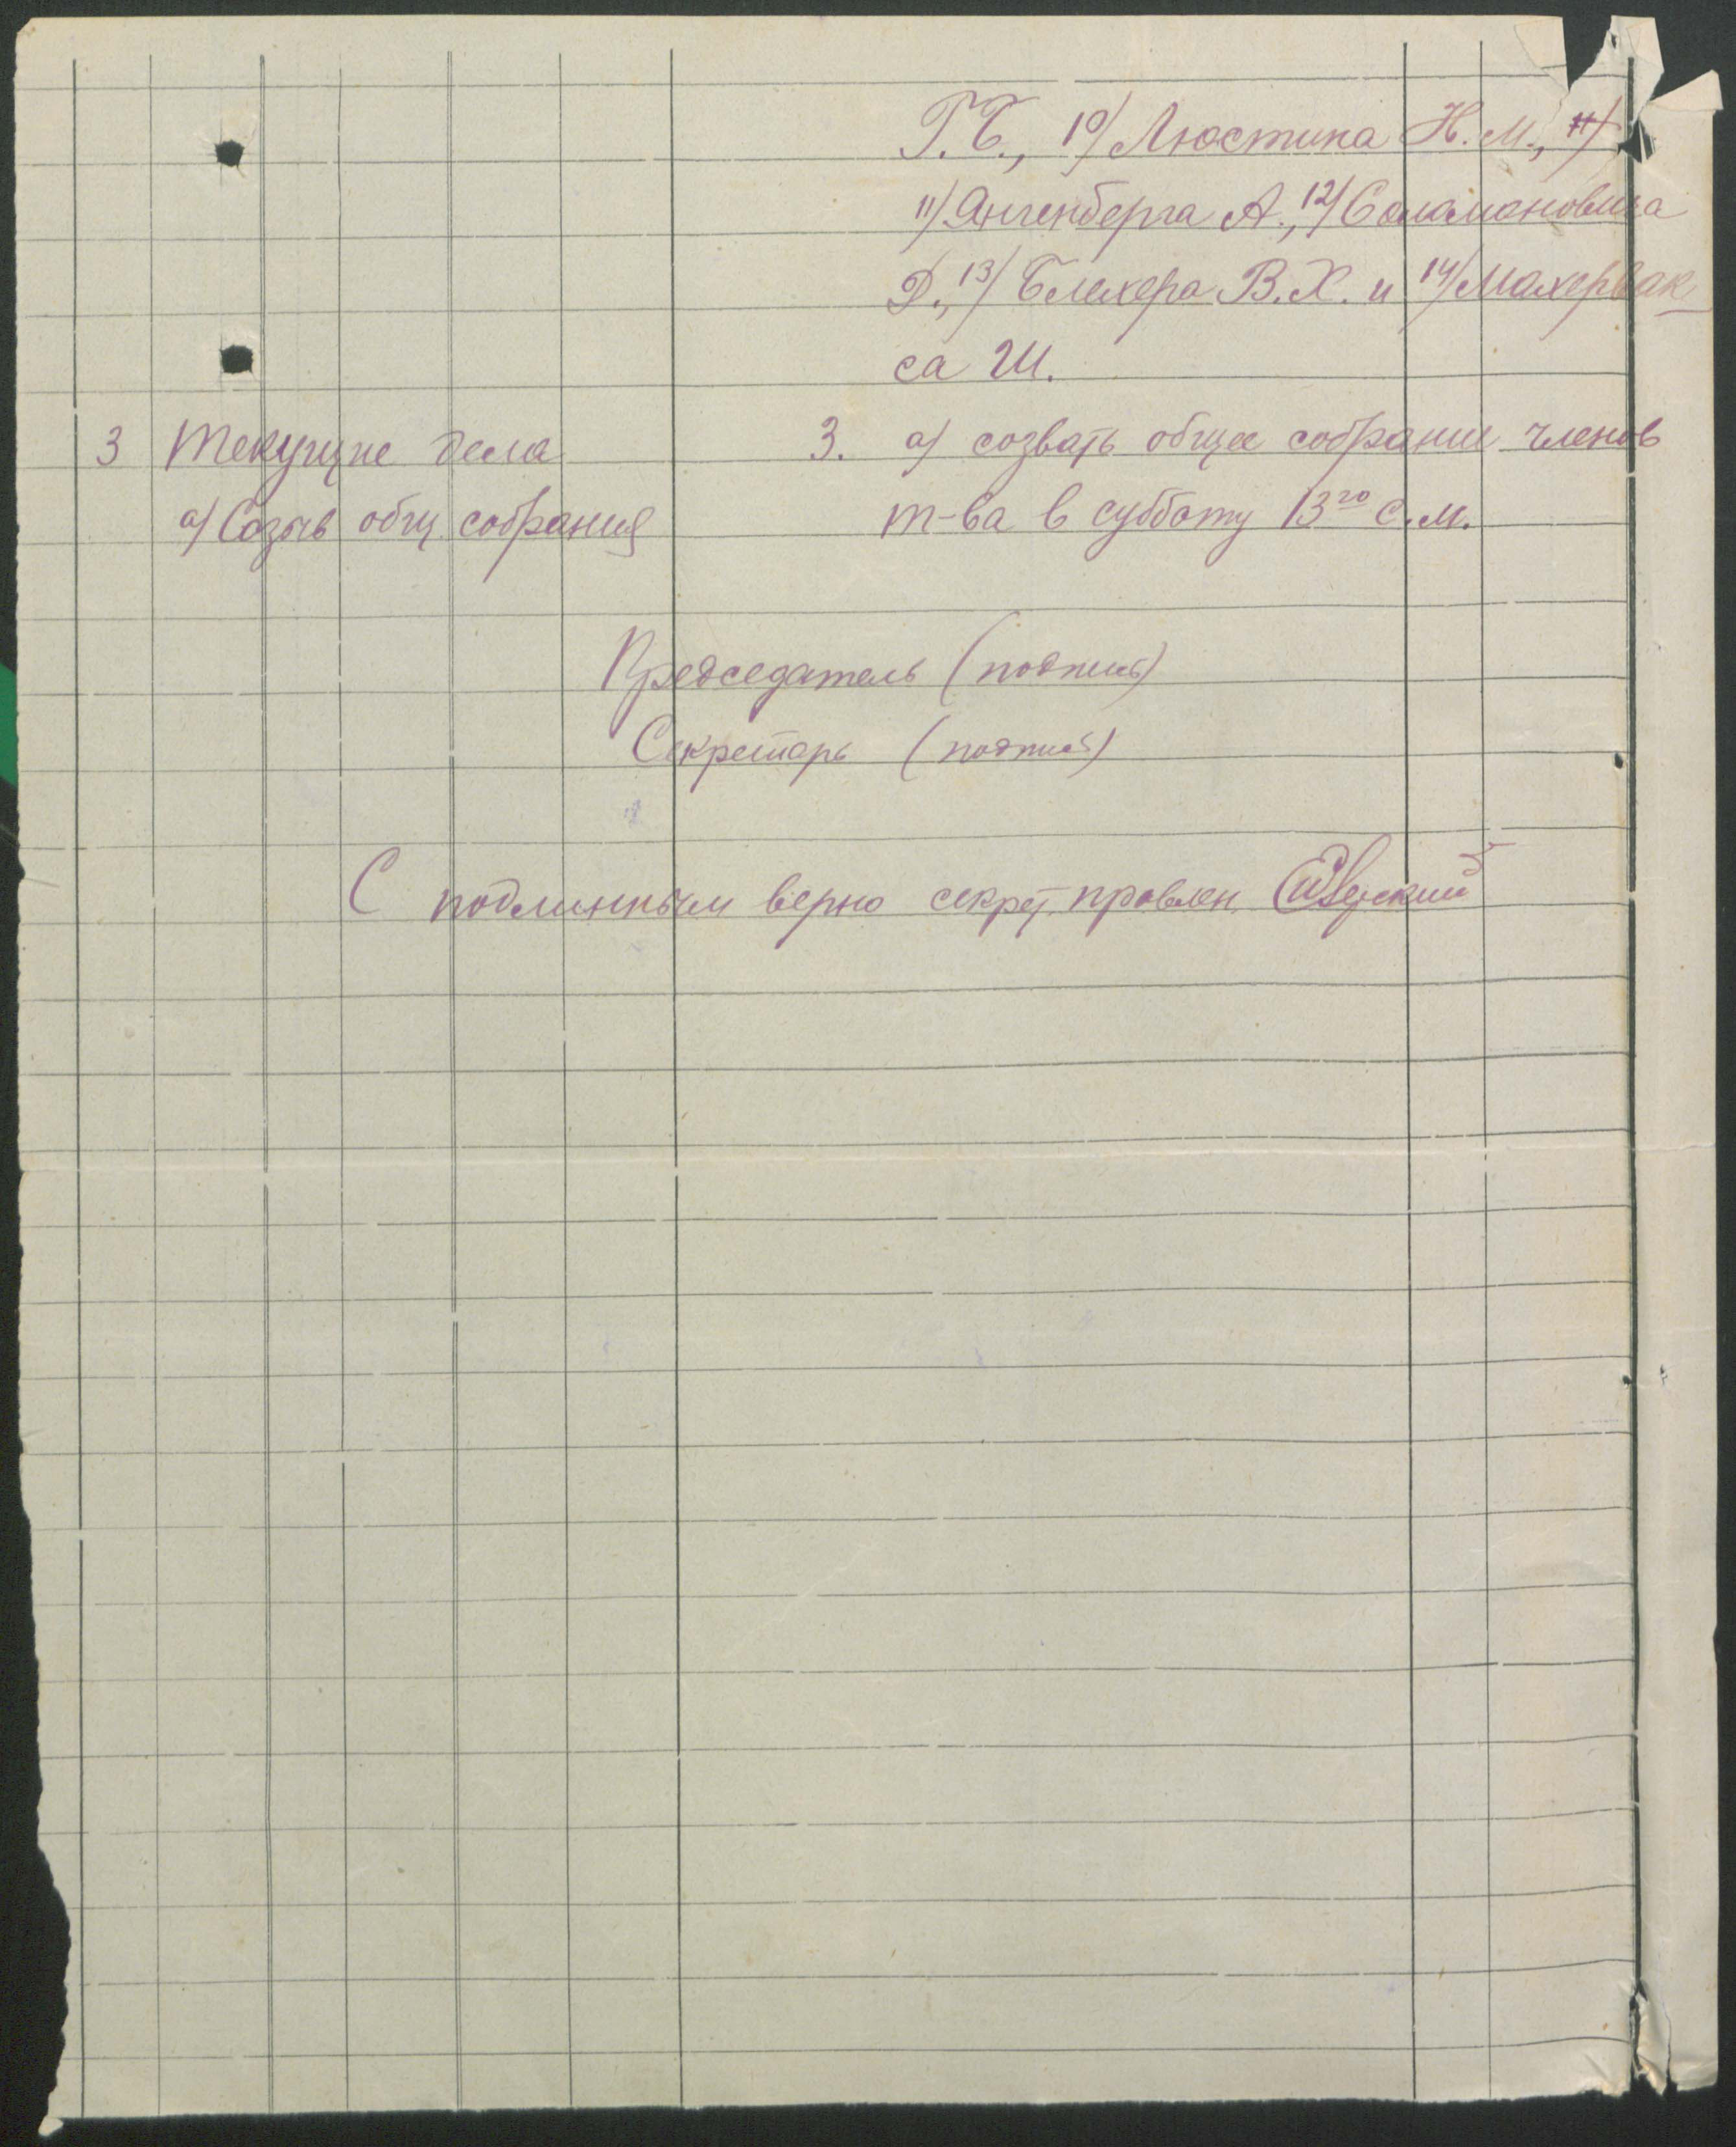 Г.Б., 10/ Люстина Н.М., 11/
11/ Янгенберга А., 12/ Соламоновича
Д., 13/ Блехера В.Х. и 14/ Махервак
са Ш.
3 Текущие дела
а/ Созыв общ. собрания
3. а/ созвать общее собрание членов
т-ва в субботу 13го с.м.
Председатель (подпись)
Секретарь (подпись)
С подлинным верно секрет. правлен.